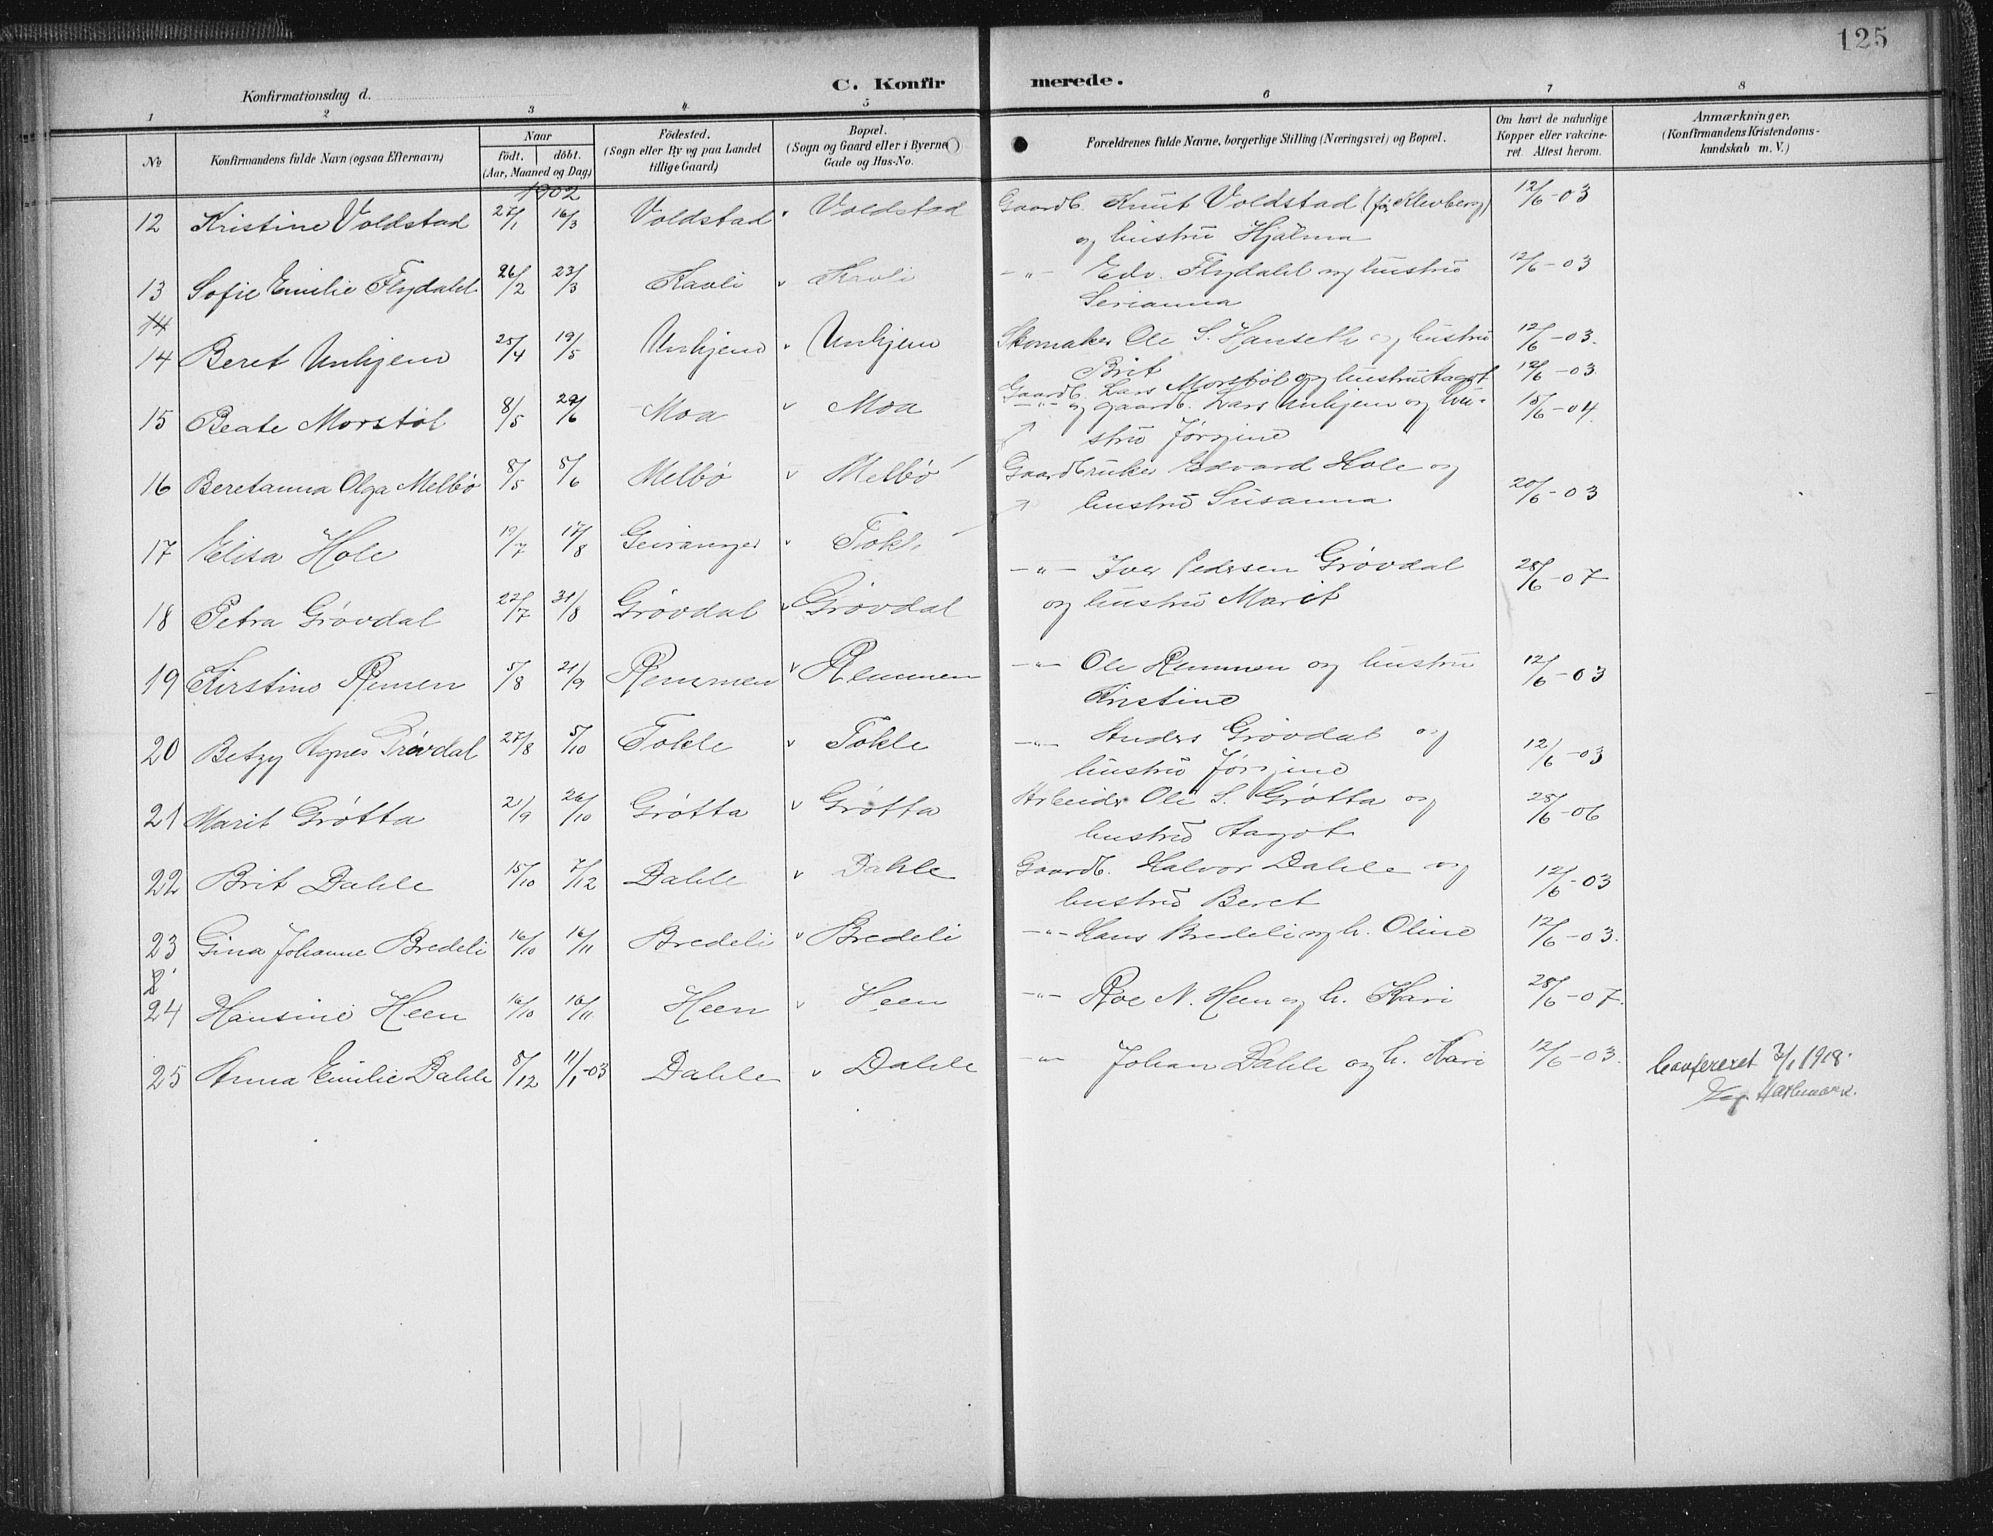 125
C. Konfirmerede.
Konfirmationsdag d.
1 2 3 4 5 6 7 8
No Konfirmandens fulde Navn (ogsaa Efternavn) Naar födt. döbt. (Aar, Maaned og Dag) Födested. (Sogn eller By og paa Landet tillige Gaard) Bopæl. (Sogn og Gaard eller i Byerne Gade og Hus-No. Forældrenes fulde Navne, borgerlige Stilling (Næringsvei) og Bopæl. Om havt de naturlige Kopper eller vakcineret. Attest herom. Anmærkninger. (Konfirmandens Kristendomskundskab m. V.)
1902
12 Kristine Voldstad 27/1 16/3 Voldstad Voldstad Gaardb. Knut Voldstad (før Klevberg) 12/6-03
og hustru Hjalma
13 Sofie Emilie Flydalet 26/2 23/3 Kavli Kavli -"- Edv. Flydalet og hustru 12/6-03
Serianna
14
14 Beret Unhjem 25/4 19/5 Unhjem Unhjem Skomaker Ole S. Hanseth og hustru 12/6-03.
Brit
15 Beate Morstøl 8/5 29/6 Moa Moa Gaardb. Lars Morstøl og hustru Aagot 12/6-03
-"- og gaardb. Lars Unhjem og hu- 15/6-04.
stru Jørgine
16 Beretanna Olga Melbø 8/5 5/6 Melbø Melbø Gaardbruker Edvard Hole og
hustru Susanna 20/6-03
17 Elisa Hole 19/7 17/8 Geiranger Tokle
-"- Iver Pedersen Grøvdal 28/6-07
18 Petra Grøvdal 22/7 31/8 Grøvdal Grøvdal og hustru Marit
19 Kirstine Remen 5/8 21/9 Remmen Remmen -"- Ole Remmen og hustru 12/6-03
Kristine
20 Betzy Agnes Grøvdal 27/8 5/10 Tokle Tokle -"- Anders Grøvdal og 12/6-03
hustru Jørgine
21 Marit Grøtta 2/9 26/10 Grøtta Grøtta Arbeider Ole S. Grøtta og 28/6-06
hustru Aagot
22 Brit Dahle 15/10 7/12 Dahle Dahle Gaardb. Halvor Dahle og 12/6-03
hustru Beret
23 Gina Johanne Bredeli 16/10 16/11 Bredeli Bredeli -"- Hans Bredeli og h. Oline 12/6-03.
24 Hansine Heen 16/10 16/11 Heen Heen -"- Roe N. Heen og h. Kari 28/6-07.
25 Anna Emilie Dahle 8/12 11/1-03 Dahle Dahle -"- Johan Dahle og h. Kari 12/6-03. Confereret 3/1 1918.